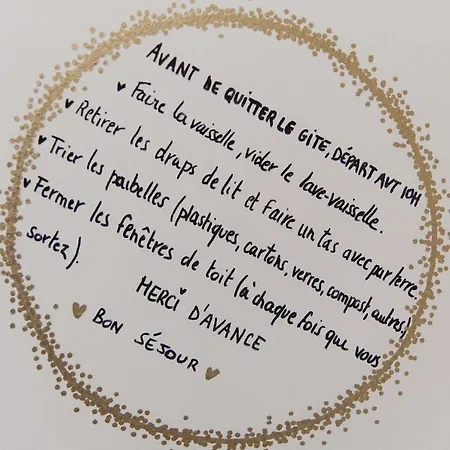 AVANT DE QUITTER LE GITE, DÉPART AVT 10H
♥ Faire la vaisselle, vider le lave-vaisselle.
♥ Retirer les draps de lit et faire un tas avec par terre.
♥ Trier les poubelles (plastiques, cartons, verres, compost, autres,)
♥ Fermer les fenêtres de toit (à chaque fois que vous
sortez).
MERCI D'AVANCE
♥ BON SÉJOUR ♥